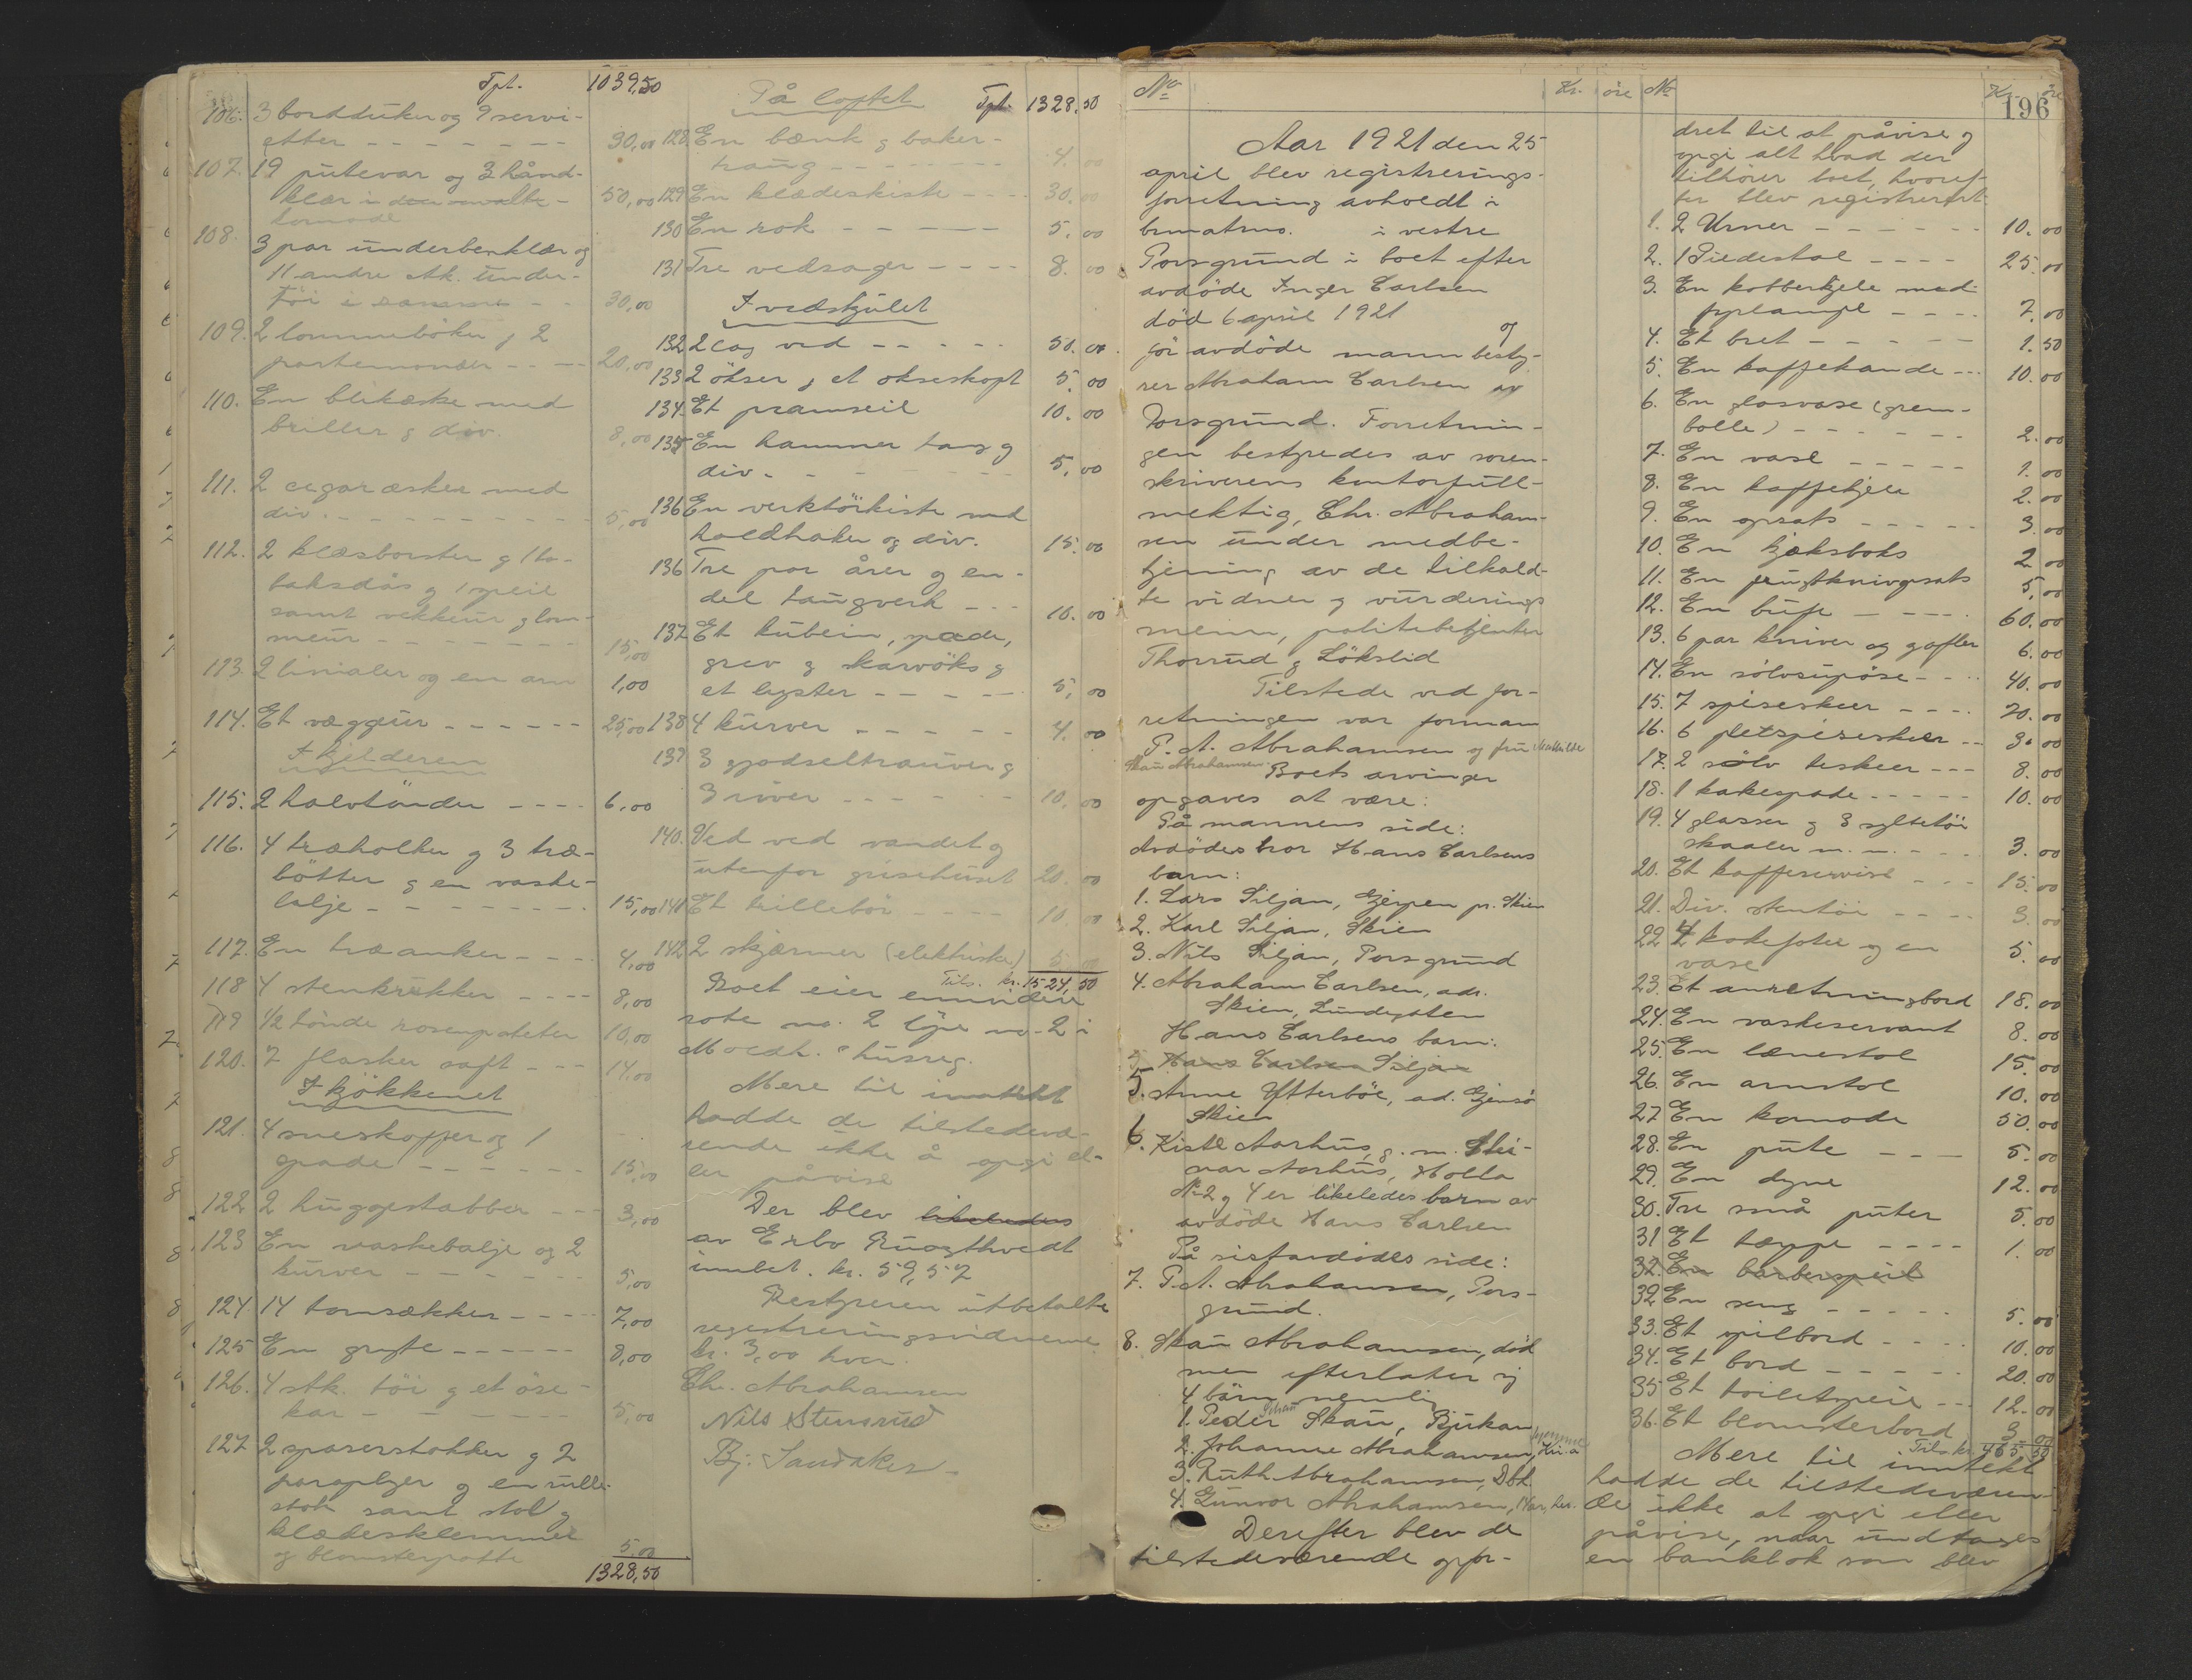 Tpt. 1039,50
106. 3 bordduker og 9 servi-
etter - - - - - - - 30,00
107. 19 putevar og 3 hånd-
klær i den omvalte - 50,00
komode
108. 3 par underbenklær og
11 andre stk. under-
töi i samme - - 30,00
109. 2 lommeböker, 2
portemonær - - - 20,00
110. En blikæske med
briller g div. 8,00
111. 2 cigaræsker med
div. - - - - - - - - 5,00
112. 2 klæsborster g 1 to-
baksdås g 1 speil
samt vekkeur g lom-
meur - - - - - - - 15,00
113. 2 linialer og en arm 1,00
114. Et væggeur - - - - - - 25,00
I kjelderen
115. 2 halvtönder - - - - 6,00
116. 4 træholker g 3 træ-
bötter g en vaske-
balje - - - - - - - - 15,00
117. En træanker - - - 4,00
118 4 stenkrukker - - - - 8,00
119 1/2 tönde rosenpoteter 10,00
120. 7 flasker saft - - - 14,00
I kjökkenet
121. 4 sneskopper og 1
spade - - - - - - 15,00
122 2 huggestabber - - - 3,00
123 En vaskebalje og 2
kurver - - - - - - 5,00
124 14 tomsækker - - - - 7,00
125 En gryte - - - - - - 8,00
126. 4 stk. töi g et öse-
kar - - - - - - 5,00
127 2 spaserstokker g 2
paraplyer g en rulle-
stok samt stol g
klædesklemmer
og blomsterpotte 5.00
1328,50
På loftet Tpt. 1328.50
128 En bænk g baker-
traug - - - - - - - 4.00
129 En klædeskiste - - - - 30.00
130 En rok - - - - - - 5.00
131 Tre vedsager - - - - 8.00
I vedskjulet
132 2 lag ved - - - - - 50.00
133 2 ökser, et økseskapt 5.00
134. Et pramseil 10.00
135 En hammer tang g
div. - - - - - - - 5,00
136 En verktöikiste med
holdhaker og div. 15.00
136 Tre par årer g en-
del taugverk - - - 10.00
137 Et kubein, spade,
grev g skarvöks g
et lyster - - - - - 5,00
138 4 kurver - - - - - - 4.00
139 3 gjødseltrauver g
3 river - - - - - 10.00
140. Ved ved vandet g
utenfor grisehuset 20.00
141 Et trillebör - - - - 10.00
142 2 skjærmer (elektriske) 5.00
Tils. kr. 1524,50
Boet eier enmindre
rote no. 2 löpe no. 2 i
Moldh. husreg.
Mere til inntekt
hadde de tilstedevæ-
rende ikke å opgi el-
ler påvise
Der blev likeledes
av Erbo Ruugthvedt
innbet. kr. 59,57
Bestyreren utbetalte
registreringsvidnerne
kr. 3,00 hver.
Chr. Abrahamsen
Nils Stensrud
Bj. Sandaker
No Kr. öre
Aar 1921 den 25
april blev registrerings-
forretning avholdt i
brmatrno. i vestre
Porsgrund i boet efter
avdöde Inger Carlsen
död 6 april 1921 og
för avdöde mann besty-
rer Abraham Carlsen av
Porsgrund. Forretnin-
gen bestyredes av soren-
skriverens kontorfull-
mektig, Chr. Abraham-
sen under medbe-
tjening av de tilkald-
te vidner g vurderings
menn, politibetjenter
Thorrud g Lökslid
Tilstede ved for-
retningen var forman
P. A. Abrahamsen og fru Mathilde
Skau Abrahamsen. Boets arvinger
opgaves at være:
På mannens side:
Avdödes bror Hans Carlsens
barn:
1. Lars Siljan, Gjerpen pr. Skien
2. Karl Siljan, Skien
3. Nils Siljan, Porsgrund
4. Abraham Carlsen, adr.
Skien, Lundgsten
Hans Carlsens barn:
5. Hans Carlsen Siljan
5. Anne Ytterböe, ad. Gjemsö
Skien
6. Kistl Aarhus, g. m. Stei-
nar Aarhus, Holla
No 2 g 4 er likeledes barn av
avdöde Hans Carlsen
På sistavdödes side:
7. P. A. Abrahamsen, Pors-
grund.
8. Skau Abrahamsen, död
men efterlater sig
4 barn nemlig
1. Peder Johan Skau, Rjukan
2. Johanne Abrahamsen, hjemme Kr.a
3. Ruth Abrahamsen, Dbt.
4. Gunvor Abrahamsen, 14 aar, her.
Derefter blev de
tilstedeværende opfor-
No Kr. öre
196
dret til at påvise g
opgi alt hvad der
tilhörer boet, hvoref-
ter blev registrerert:
1. 2 Urner - - - - - - 10.00
2. 1 Piedestal - - - - 25.00
3. En kobberkjele med
fyrlampe - - - - 7.00
4. Et bret - - - - - 1.50
5. En kaffekande - - - 10.00
6. En glasvase (grem-
bolle) - - - - - - 2.00
7. En vase - - - - - 1.00
8. En kaffekjele 2.00
9. En opsats - - - - - 3.00
10. En kjæksboks 2.00
11. En frugtknivopsats 5,00
12. En bufe - - - - - 60.00
13. 6 par kniver og gafler 6.00
14. En sölvsupöse - - - 40.00
15. 7 spiseskeer - - - - 20.00
16. 6 pletspiseskeer - - 3.00
17. 2 sölv teskeer - - - 8.00
18. 1 kakespade - - - - - 10.00
19. 4 glasser g 3 syltetöi
skaaler m. m. - - - 3.00
20. Et kaffeservise - - - 15.00
21. Div. stentöi - - - - 3.00
22 4 kakefater og en
vase 5.00
23. Et anretningsbord 18.00
24. En vaskeservant 8.00
25. En lænestol 15.00
26. En armstol 10.00
27 En komode 50.00
28. En pute - - - 5.00
29. En dyne 12.00
30. Tre små puter 5.00
31 Et tæppe - - - - 1.00
32. En barberspeil
32 En seng - - - - - 5.00
33. Et spilbord - - - - 10.00
34. Et bord - - - - - 20.00
35 Et toiletspeil - - - 12.00
36. Et blomsterbord 3.00
Tils. kr. 465,50
Mere til inntekt
hadde de tilstedeværen-
de ikke at opgi eller
påvise, naar undtages
en bankbok som blev